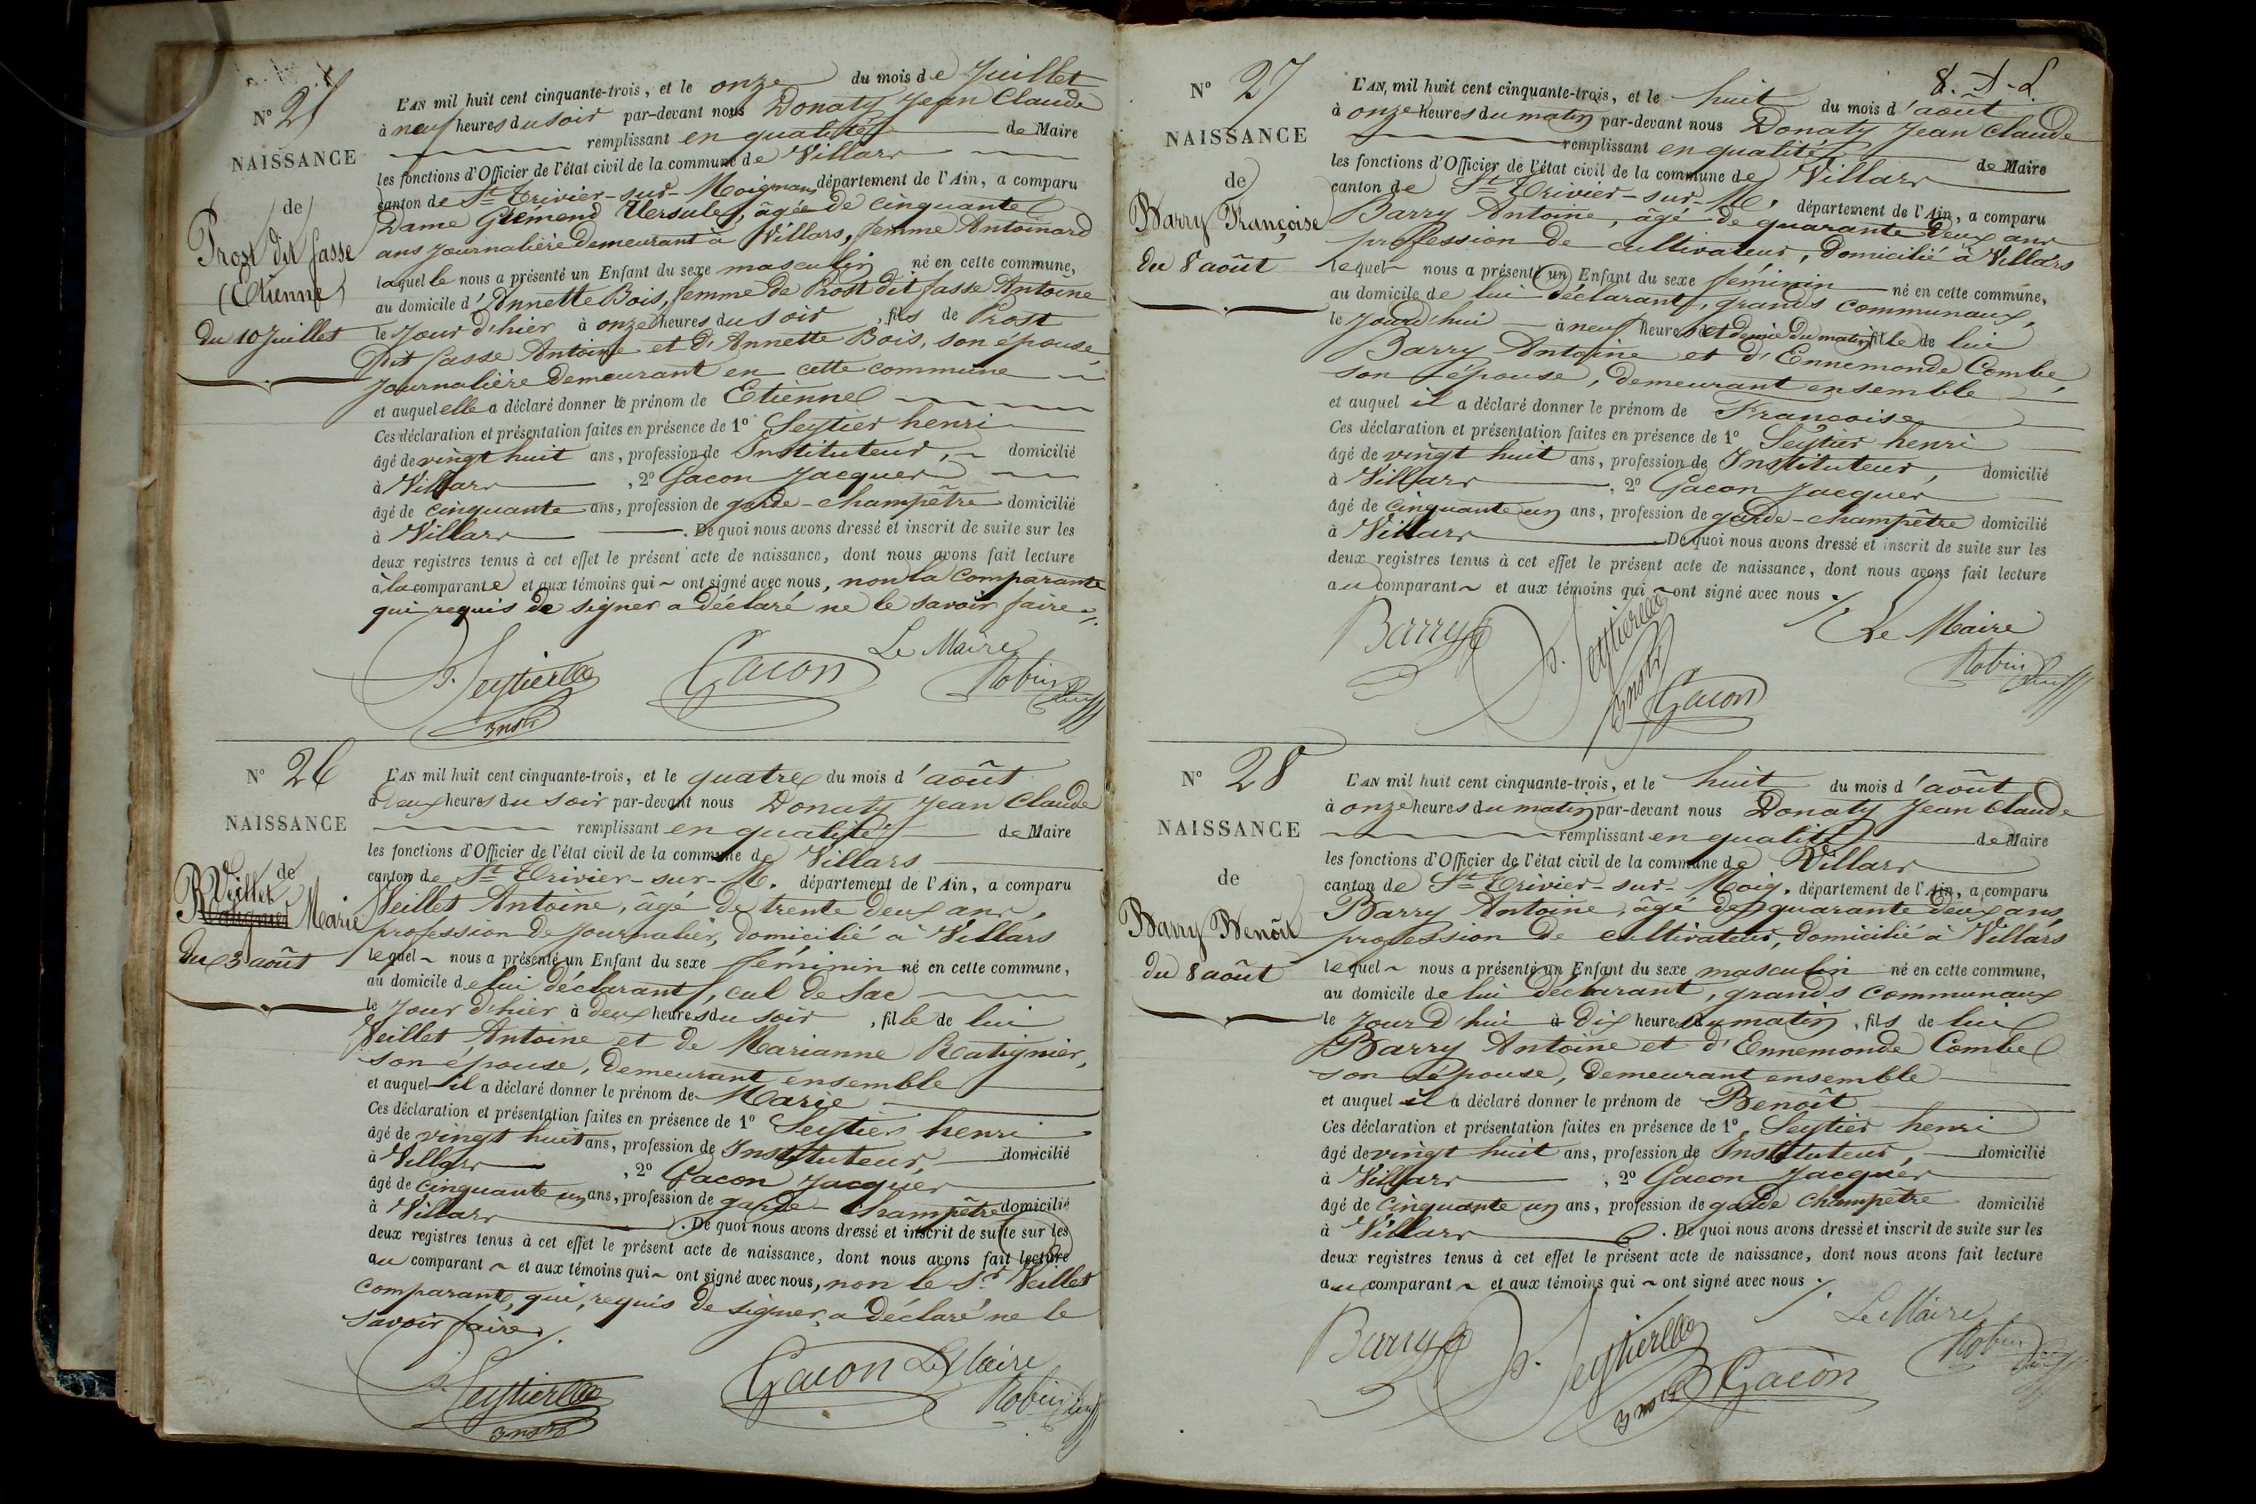 N° 25
NAISSANCE
de
Prost dit Jasse
(Etienne)
du 10 Juillet
L'AN mil huit cent cinquante-trois, et le onze du mois de Juillet
à neuf heures du soir par-devant nous Donaty Jean Claude
remplissant en qualité de Maire
les fonctions d'Officier de l'état civil de la commune de Villars
canton de St Trivier-sur-Moignans département de l'Ain, a comparu
Dame Ursule, âgée de cinquante
ans journalière demeurant à Villars, femme Antoinard
laquelle nous a présenté un Enfant du sexe masculin né en cette commune,
au domicile d'Annette Bois, femme de Prost dit Jasse Antoine
le jour d'hier à onze heures du soir, fils de Prost
dit Jasse Antoine et d'Annette Bois, son épouse,
journalière demeurant en cette commune
et auquel elle a déclaré donner le prénom de Etienne
Ces déclaration et présentation faites en présence de 1° Seytier henri
âgé de vingt huit ans, profession de Instituteur, domicilié
à Villars, 2° Gacon Jacques
âgé de cinquante ans, profession de garde-champêtre domicilié
à Villars. De quoi nous avons dressé et inscrit de suite sur les
deux registres tenus à cet effet le présent acte de naissance, dont nous avons fait lecture
à la comparante et aux témoins qui ont signé avec nous, non la comparante
qui requis de signer a déclaré ne le savoir faire.
Le Maire
Seytier
Gacon
Robin
N° 26
NAISSANCE
de
Veillet
Marie
du 3 août
L'AN mil huit cent cinquante-trois, et le quatre du mois d'août
à deux heures du soir par-devant nous Donaty Jean Claude
remplissant en qualité de Maire
les fonctions d'Officier de l'état civil de la commune de Villars
canton de St Trivier-sur-M. département de l'Ain, a comparu
Veillet Antoine, âgé de trente deux ans,
profession de journalier, domicilié à Villars
lequel nous a présenté un Enfant du sexe féminin né en cette commune,
au domicile de lui déclarant, cul de sac
le jour d'hier à deux heures du soir, fille de lui
Veillet Antoine et de Marianne Ratignier,
son épouse, demeurant ensemble
et auquel il a déclaré donner le prénom de Marie
Ces déclaration et présentation faites en présence de 1° Seytier henri
âgé de vingt huit ans, profession de Instituteur, domicilié
à Villars, 2° Gacon Jacques
âgé de cinquante un ans, profession de garde-champêtre domicilié
à Villars. De quoi nous avons dressé et inscrit de suite sur les
deux registres tenus à cet effet le présent acte de naissance, dont nous avons fait lecture
au comparant et aux témoins qui ont signé avec nous, non le Sr Veillet
comparant, qui, requis de signer, a déclaré ne le
savoir faire.
Seytier
Gacon
Le Maire
Robin
N° 27
NAISSANCE
de
Barry Françoise
du 8 août
L'AN mil huit cent cinquante-trois, et le huit du mois d'août
à onze heures du matin par-devant nous Donaty Jean Claude
remplissant en qualité de Maire
les fonctions d'Officier de l'état civil de la commune de Villars
canton de St Trivier-sur-M. département de l'Ain, a comparu
Barry Antoine, âgé de quarante deux ans
profession de cultivateur, domicilié à Villars
lequel nous a présenté un Enfant du sexe féminin né en cette commune,
au domicile de lui déclarant, grands communaux,
le jourd'hui à neuf heures et demie du matin, fille de lui
Barry Antoine et d'Ennemonde Combe,
son épouse, demeurant ensemble
et auquel il a déclaré donner le prénom de Françoise
Ces déclaration et présentation faites en présence de 1° Seytier henri
âgé de vingt huit ans, profession de Instituteur, domicilié
à Villars, 2° Gacon Jacques
âgé de cinquante un ans, profession de garde-champêtre domicilié
à Villars. De quoi nous avons dressé et inscrit de suite sur les
deux registres tenus à cet effet le présent acte de naissance, dont nous avons fait lecture
au comparant et aux témoins qui ont signé avec nous.
Barry
Seytier
Gacon
Le Maire
Robin
N° 28
NAISSANCE
de
Barry Benoît
du 8 août
L'AN mil huit cent cinquante-trois, et le huit du mois d'août
à onze heures du matin par-devant nous Donaty Jean Claude
remplissant en qualité de Maire
les fonctions d'Officier de l'état civil de la commune de Villars
canton de St Trivier-sur-Moig. département de l'Ain, a comparu
Barry Antoine, âgé de quarante deux ans,
profession de cultivateur, domicilié à Villars
lequel nous a présenté un Enfant du sexe masculin né en cette commune,
au domicile de lui déclarant, grands communaux
le jourd'hui à dix heures du matin, fils de lui
Barry Antoine et d'Ennemonde Combe
son épouse, demeurant ensemble
et auquel il a déclaré donner le prénom de Benoît
Ces déclaration et présentation faites en présence de 1° Seytier henri
âgé de vingt huit ans, profession de Instituteur, domicilié
à Villars, 2° Gacon Jacques
âgé de cinquante un ans, profession de garde champêtre domicilié
à Villars. De quoi nous avons dressé et inscrit de suite sur les
deux registres tenus à cet effet le présent acte de naissance, dont nous avons fait lecture
au comparant et aux témoins qui ont signé avec nous.
Barry
Seytier
Gacon
Le Maire
Robin